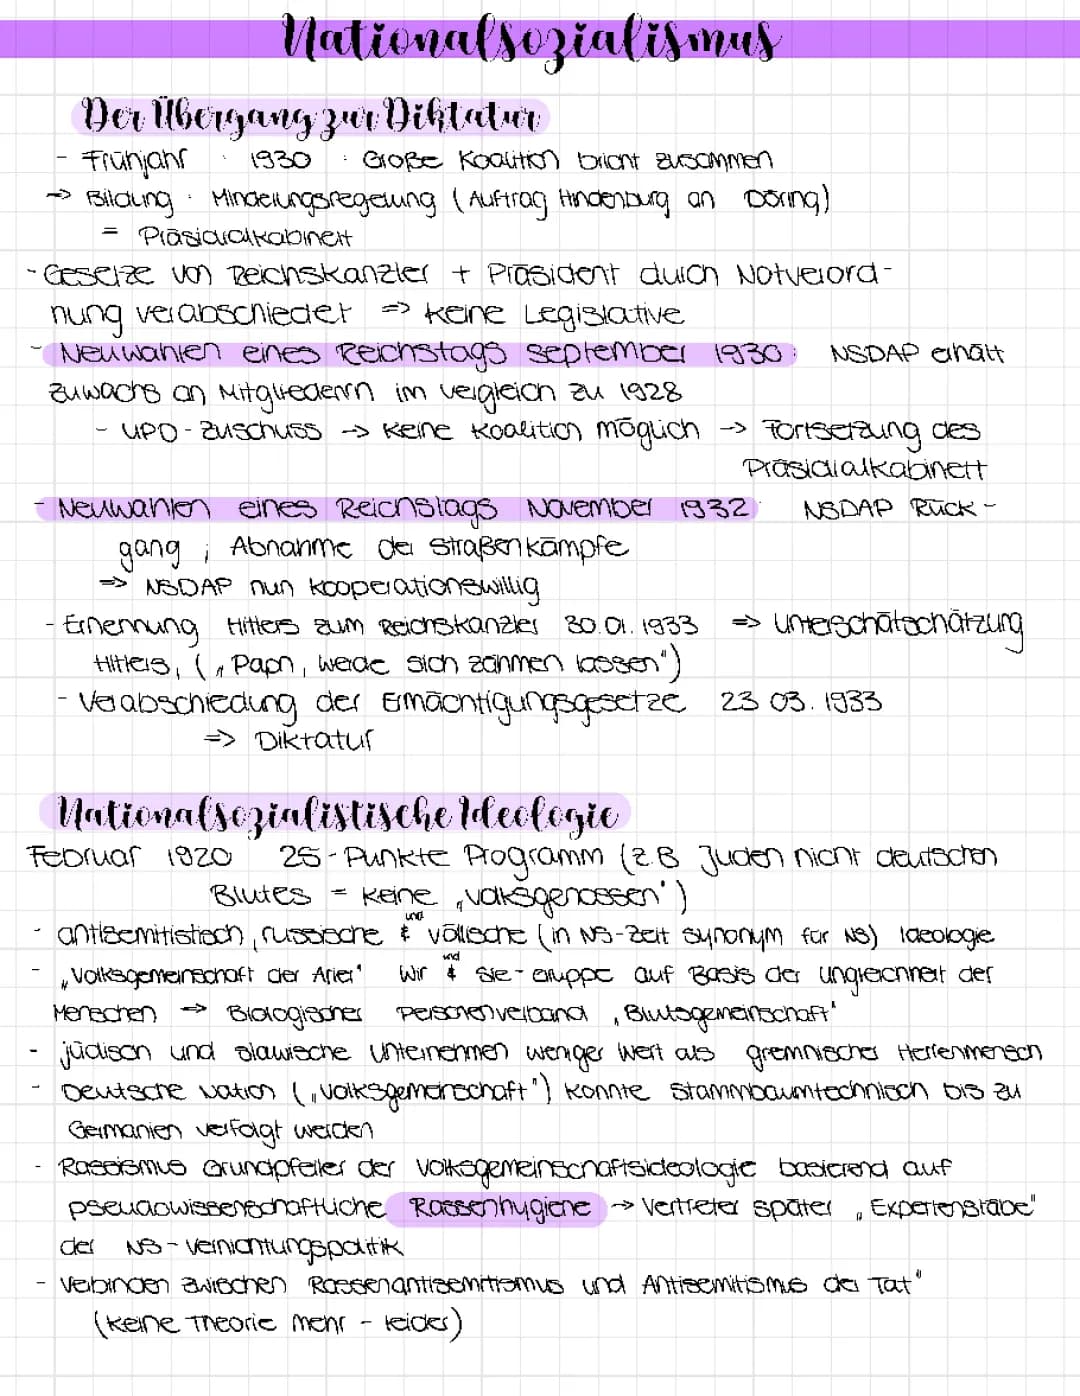 Nationalsozialismus
Der Übergang zur Diktatur
- Frühjahr 1930 : Große Koalition bricht zusammen
-> Bildung : Minderungsregelung (Auftrag Hindenburg an Döring)
= Präsidialkabinett
- Gesetze von Reichskanzler + Präsident durch Notverord-
nung verabschiedet => keine Legislative
- Neuwahlen eines Reichstags September 1930: NSDAP erhält
zuwachs an Mitgliedern im vergleich zu 1928
- UPD - Zuschuss -> keine Koalition möglich -> Fortsetzung des
Präsidialkabinett
- Neuwahlen eines Reichstags November 1932: NSDAP Rück-
gang ; Abnahme der Straßenkämpfe
=> NSDAP nun kooperationswillig
- Ernennung Hitlers zum Reichskanzler 30.01.1933 => Unterschätschätzung
Hitlers, („Papn, werde sich zähmen lassen")
- Verabschiedung der Ermächtigungsgesetze 23 03. 1933
=> Diktatur
Nationalsozialistische Ideologie
Februar 1920 25-Punkte Programm (z.B Juden nicht deutschen
Blutes = keine „Volksgenossen")
- antisemitistisch, russische & und völlische (in NS-Zeit synonym für NS) Ideologie
- „Volksgemeinschaft der Arier" Wir & und Sie-Gruppe auf Basis der Ungleichheit der
Menschen -> Biologischer Personenverband „Blutsgemeinschaft"
- jüdisch und slawische Unternehmen weniger Wert als gremnischer Herrenmensch
- Deutsche Nation („Volksgemeinschaft") konnte stammbaumtechnisch bis zu
Germanien verfolgt werden
- Rassismus Grundpfeiler der Volksgemeinschaftsideologie basierend auf
pseudowissenschaftliche Rassenhygiene -> Vertreter später „Expertenstäbe"
der NS-Vernichtungspolitik
- Verbinden zwischen Rassenantisemitismus und Antisemitismus der Tat"
(keine Theorie mehr - leider)